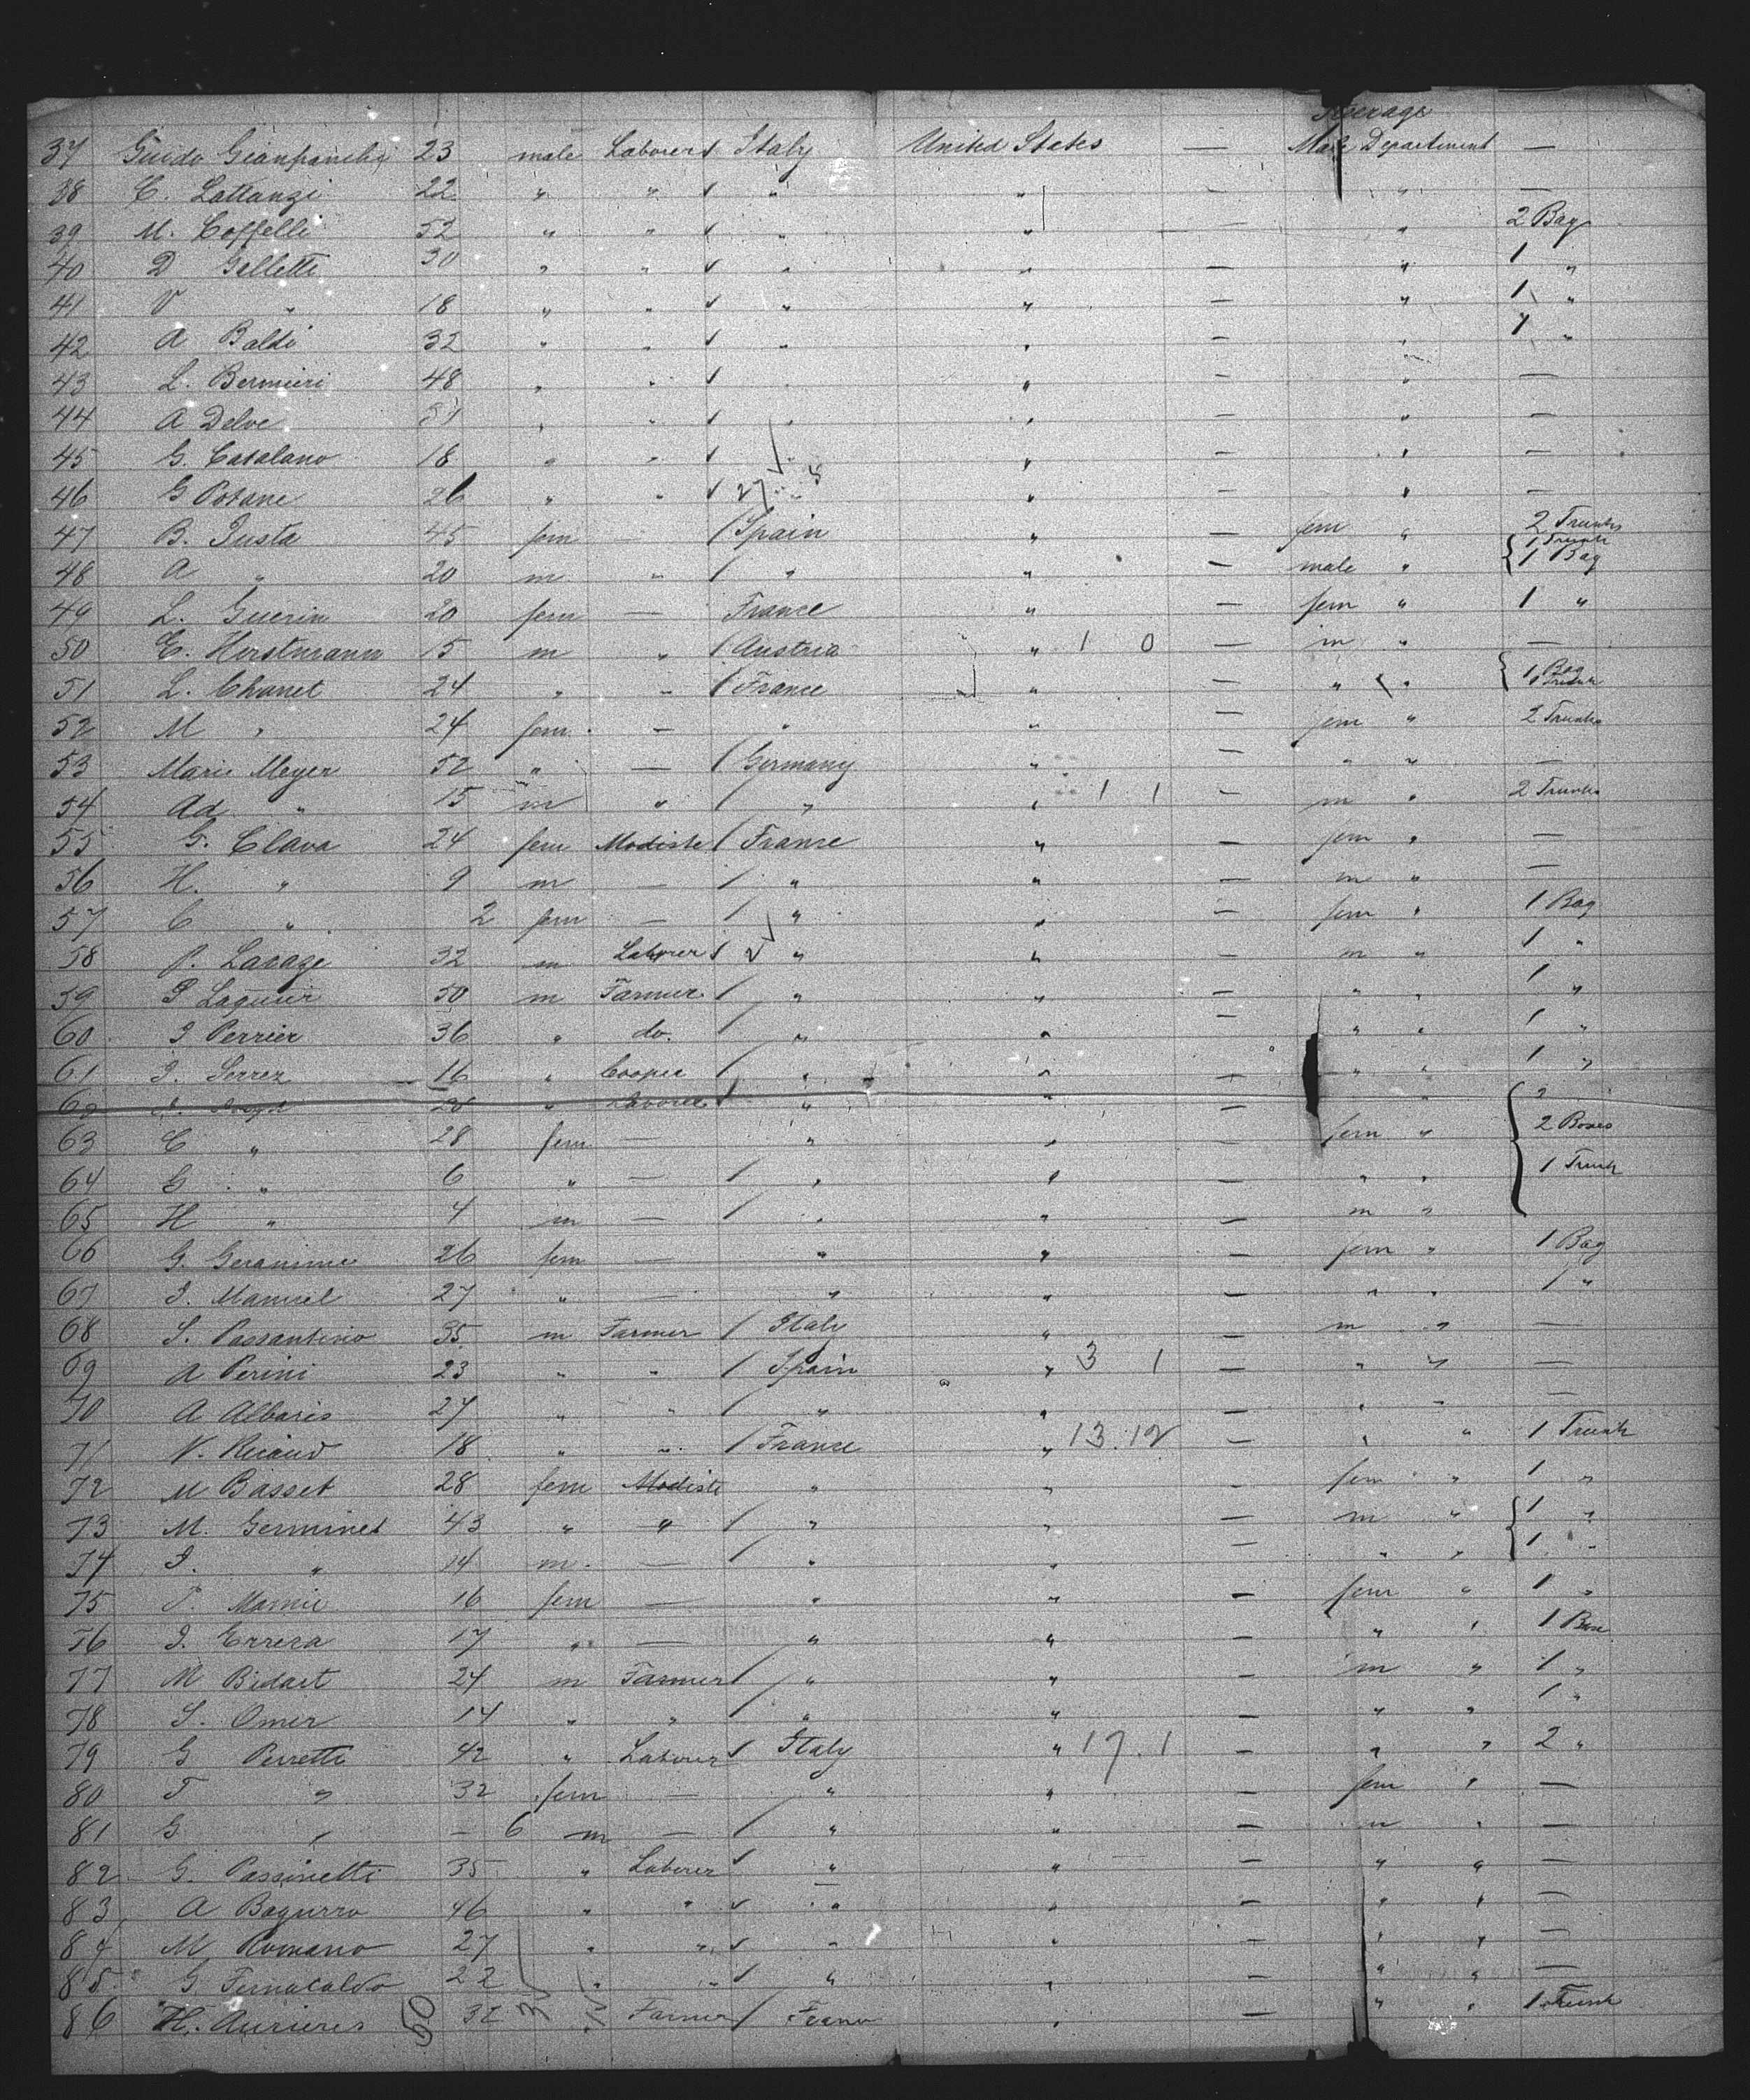 Steerage
37 Guido 23 male Laborer Italy United States — Male Department —
38 C. Lattanzi 22 " " " " — " —
39 M. Coffelli 52 " " " " — " 2 Bag
40 D Gelletti 30 " " " " — " 1 "
41 V " 18 " " " " — " 1 "
42 A Baldi 32 " " " " — " 1 "
43 L. Bermieri 48 " " " " — " —
44 A Delve " " " " — " —
45 G. Catalano 18 " " " " — " —
46 G Potane 26 " " 27 " 5 " — " —
47 B. Justa 45 fem — Spain " — fem " 2 Trunks
48 A " 20 m " " " — male " 1 Trunk 1 Bag
49 L. Guerin 20 fem — France " — fem " 1 "
50 E. Horstmann 15 m " Austria " 1 0 — m " —
51 L. Chanet 24 " " France " — " " 1 Bag 1 Trunk
52 M " 24 fem — " " — fem " 2 Trunks
53 Marie Meyer 52 " — Germany " — " " —
54 Ad. " 15 m " " " 1 1 — m " 2 Trunks
55 G. Clava 24 fem Modiste France " — fem " —
56 H. " 9 m — " " — m " —
57 C " 2 fem — " " — fem " 1 Bag
58 P. Lavage 32 m Laborer 2 " " — m " 1 "
59 P Laquier 50 m Farmer " " — " " 1 "
60 J Perrier 36 " do. " " — " " 1 "
61 J. Serrez 16 " Cooper " " — " " 1 "
62 28 " Laborer " " — " " 2
63 C " 28 fem — " " — fem " 2 Boxes
64 G " 6 " — " " — " " 1 Trunk
65 H " 4 m — " " — m "
66 G. Geronime 26 fem — " " — fem " 1 Bag
67 J. Manuel 27 " — " " — " " 1 "
68 S. Passantino 35 m Farmer Italy " — m " —
69 A Perini 23 " " Spain " 3 1 — " " —
70 A Albaris 27 " " " " — " " —
71 V. Ricaud 18 " " France " 13.12 — " " 1 Trunk
72 M Basset 28 fem Modiste " " — fem " 1 "
73 M. Germinet 43 " " " " — m " 1 "
74 J. " 14 m. — " " — " " 1 "
75 P. Mamie 16 fem — " " — fem " 1 "
76 J. Errera 17 " — " " — " " 1 Box
77 M Bidart 24 m Farmer " " — m " 1 "
78 S. Omer 14 " " " " — " " 1 "
79 G Perretti 42 " Laborer Italy " 17.1 — " " 2 "
80 T " 32 fem — " " — fem " —
81 G " — 6 m — " " — m " —
82 G. Passinetti 35 " Laborer " " — " " —
83 A Bagurro 46 " " " " — " " —
84 M Romano 27 " " " " — " " —
85 G Fernataldo 22 " " " " — " " —
86 H. Aurieres 50 32 Farmer Franc " — " " 1 Trunk